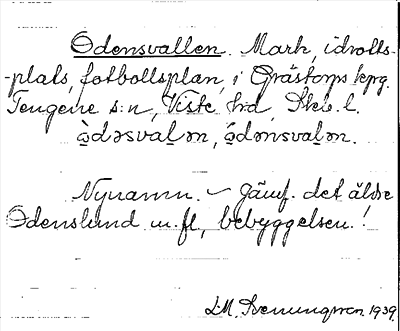 Odensvallen. Mark, idrotts-
-plats, fotbollsplan, i Grästorps kpg.
Tengene s:n, Viste hd, Skb. l.
o̱̍dəsval̠ən, o̱̍dənsval̠ən.
Nynamn. ~ Jämf. det äldre
Odenslund m. fl, bebyggelsen!
L.M. Svenungsson 1939.